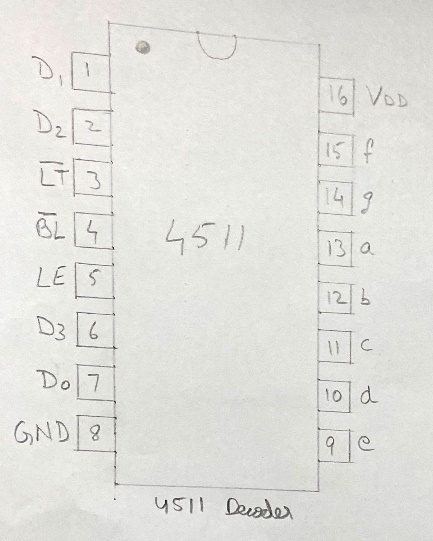 D1 1
D2 2
L̅T̅ 3
B̅L 4
LE 5
D3 6
D0 7
GND 8
4511
16 VDD
15 f
14 g
13 a
12 b
11 c
10 d
9 e
4511 Decoder